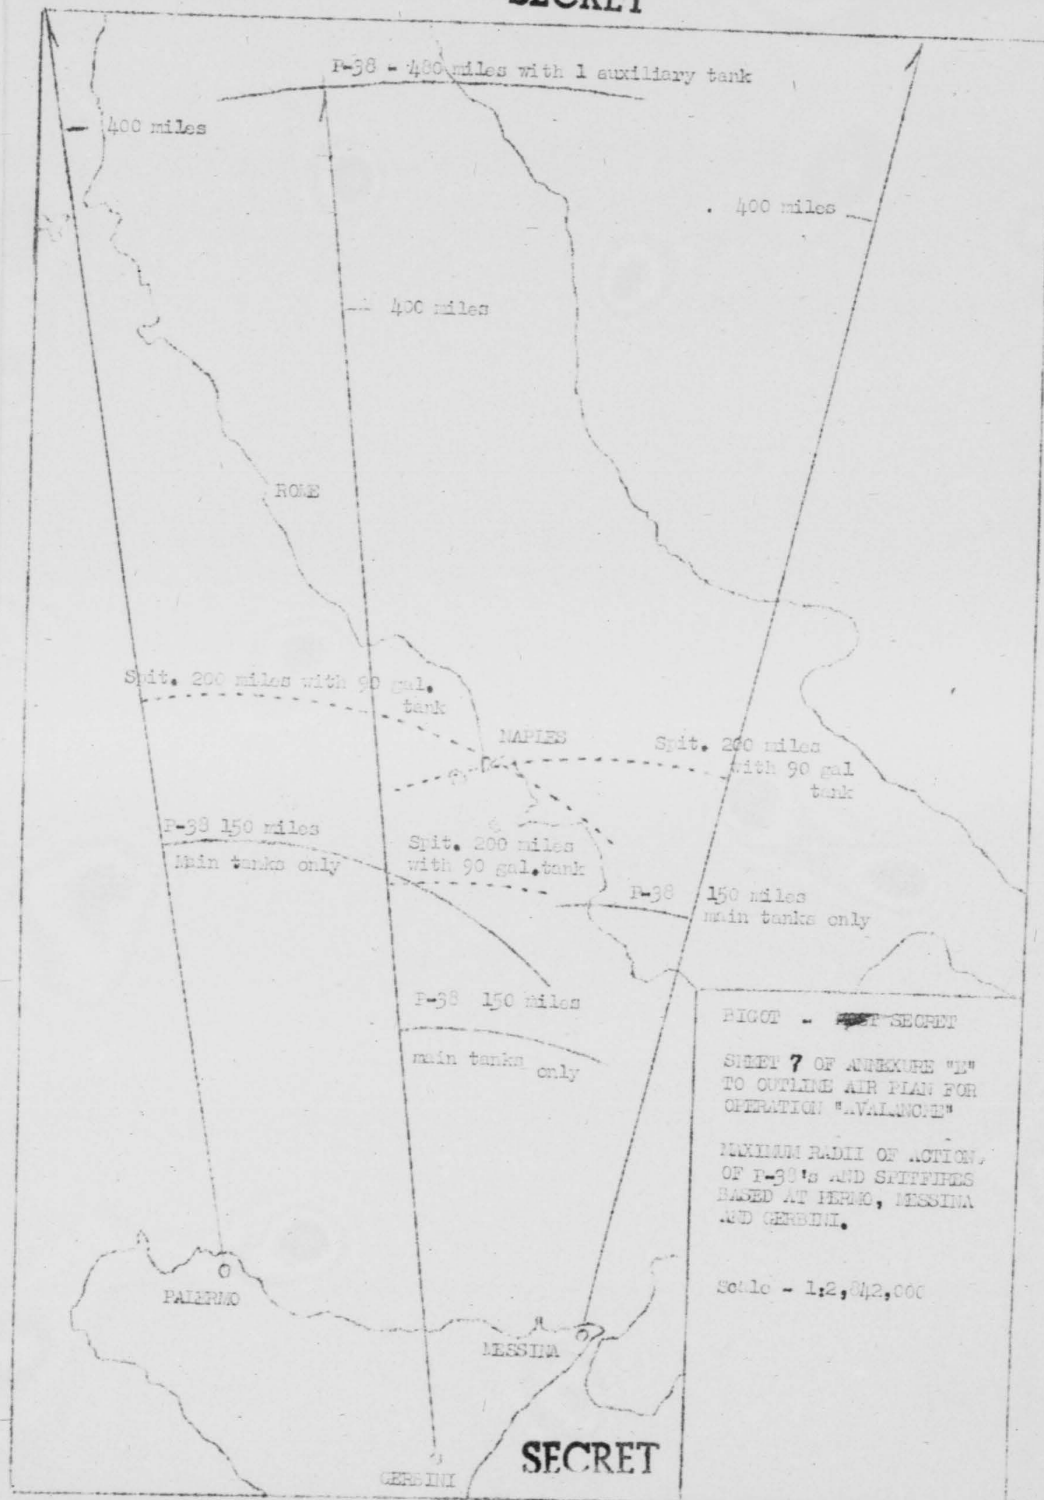 SECRET
P-38 - 480 miles with 1 auxiliary tank
400 miles
400 miles
400 miles
ROME
Spit. 200 miles with 90 gal.
tank
NAPLES
Spit. 200 miles
with 90 gal
tank
P-38 150 miles
Main tanks only
Spit. 200 miles
with 90 gal.tank
P-38 150 miles
main tanks only
P-38 150 miles
main tanks only
BIGOT - SECRET
SHEET 7 OF ANNEXURE "E"
TO OUTLINE AIR PLAN FOR
OPERATION "AVALANCHE"
MAXIMUM RADII OF ACTION,
OF P-38's AND SPITFIRES
BASED AT PERMO, MESSINA
AND GERBINI.
Scale - 1:2,842,000
PALERMO
MESSINA
GERBINI
SECRET